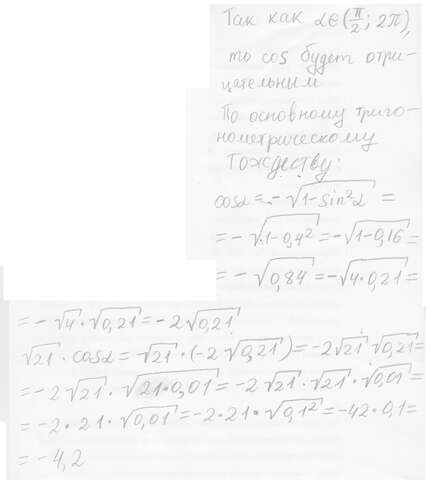 Так как α∈(π/2; 2π),
то cos будет отри-
цательным
По основному триго-
нометрическому
тождеству:
cosα = -√(1-sin²α) =
= -√(1-0,4²) = -√(1-0,16) =
= -√(0,84) = -√(4·0,21) =
= -√4·√(0,21) = -2√(0,21)
√21·cosα = √21·(-2√(0,21)) = -2√21·√(0,21) =
= -2√21·√(21·0,01) = -2√21·√21·√(0,01) =
= -2·21·√(0,01) = -2·21·√(0,1²) = -42·0,1 =
= -4,2